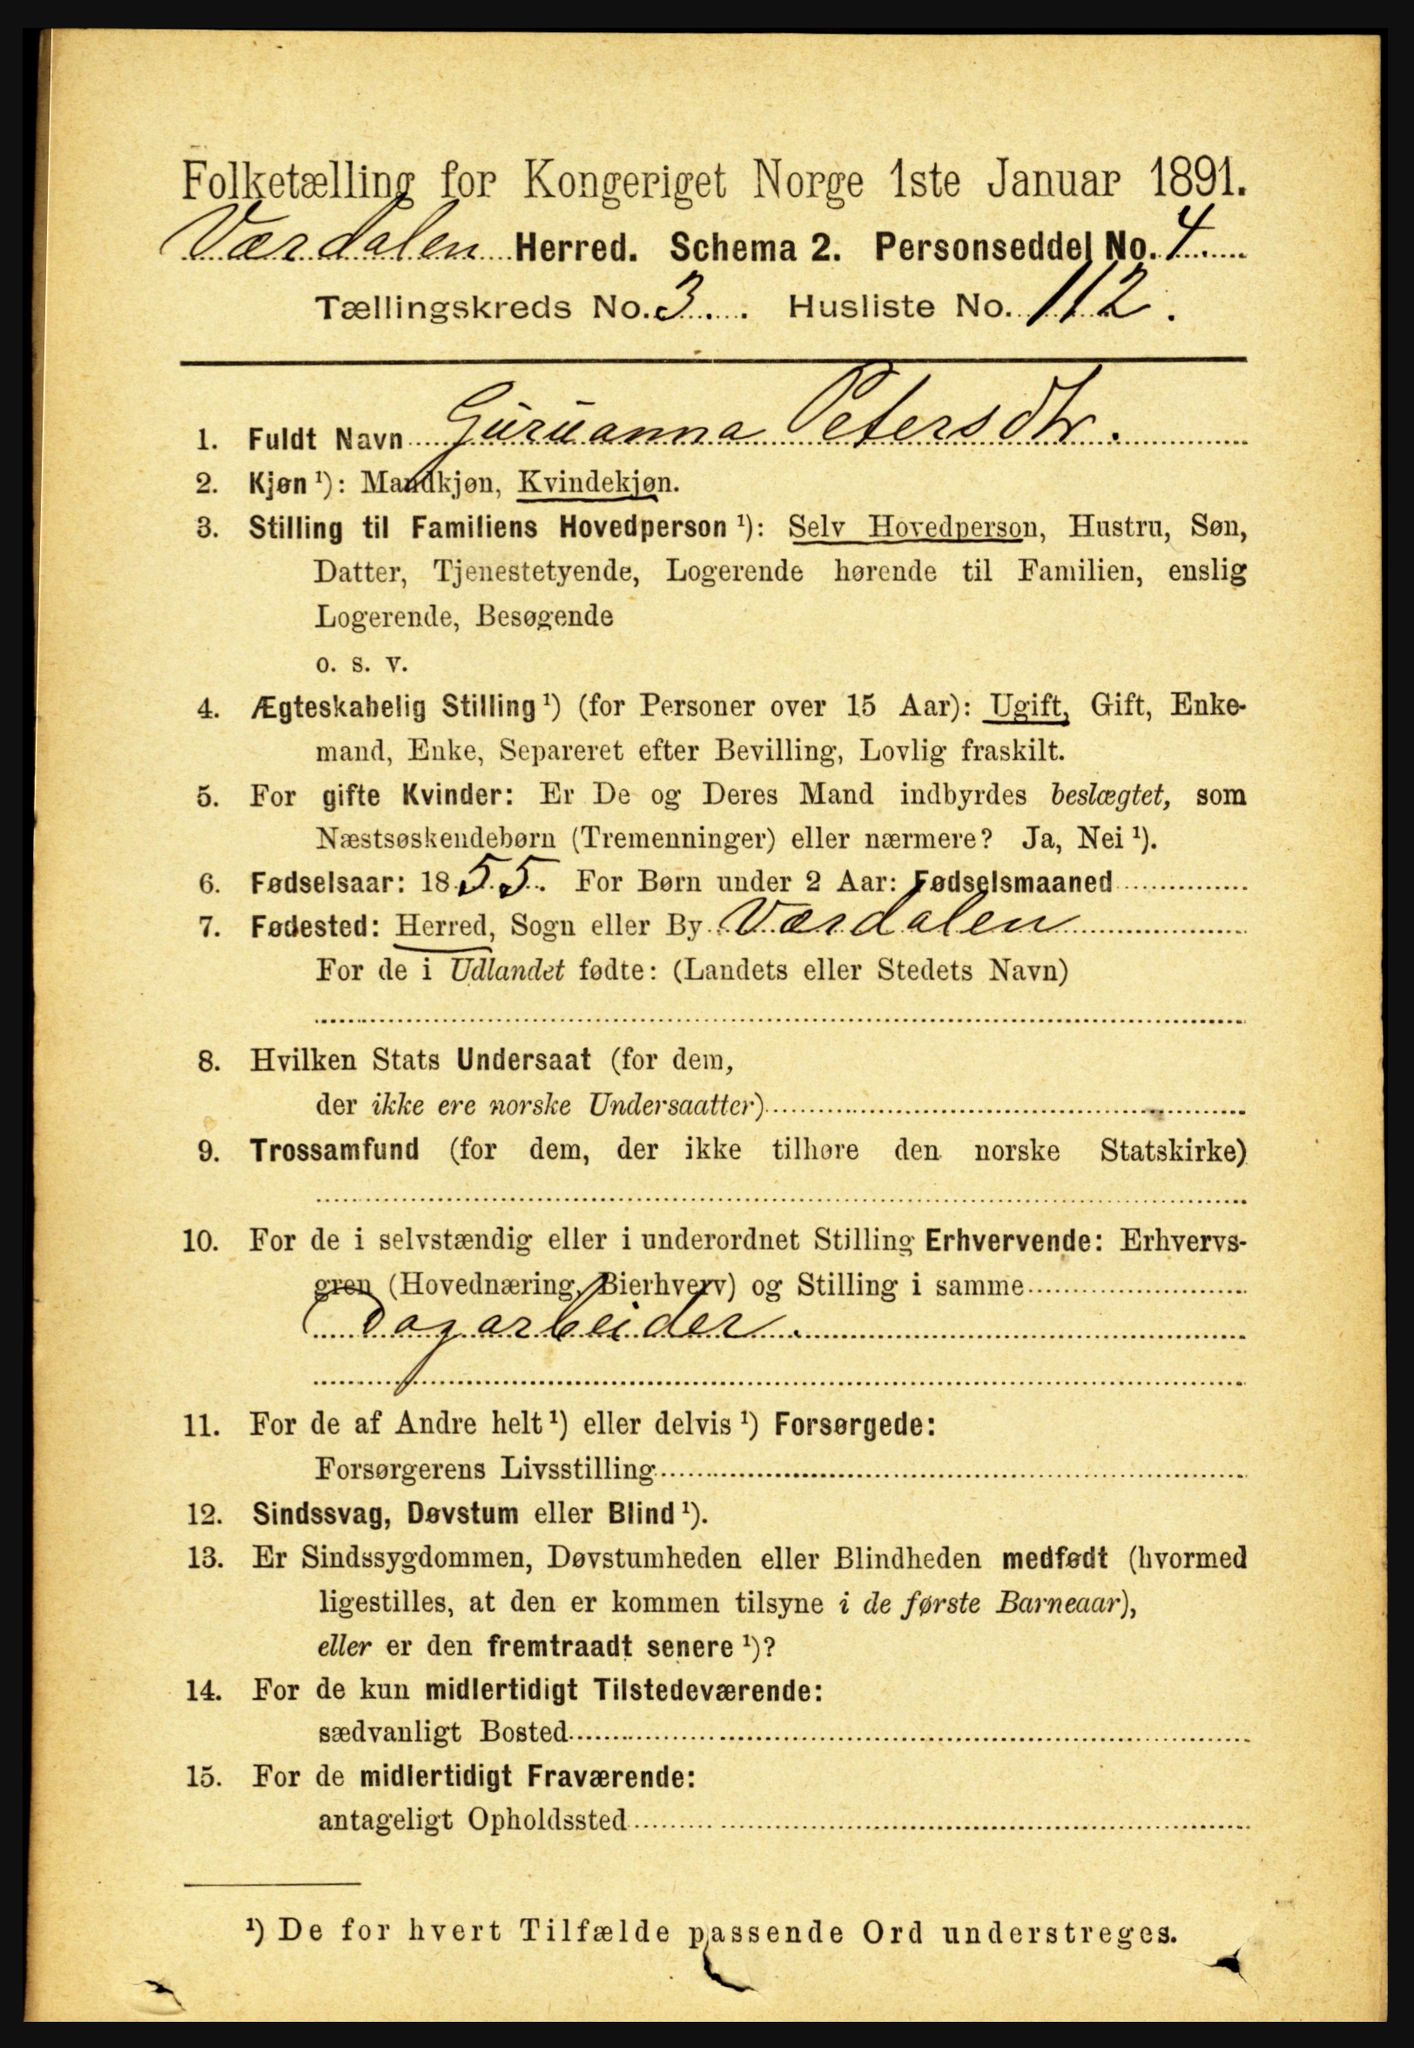 Folketælling for Kongeriget Norge 1ste Januar 1891.
Værdalen Herred. Schema 2. Personseddel No. 4.
Tællingskreds No. 3. Husliste No. 112.
1. Fuldt Navn Guruanna Petersdtr.
2. Kjøn ¹): Mandkjøn, Kvindekjøn.
3. Stilling til Familiens Hovedperson ¹): Selv Hovedperson, Hustru, Søn,
Datter, Tjenestetyende, Logerende hørende til Familien, enslig
Logerende, Besøgende
o. s. v.
4. Ægteskabelig Stilling ¹) (for Personer over 15 Aar): Ugift, Gift, Enke-
mand, Enke, Separeret efter Bevilling, Lovlig fraskilt.
5. For gifte Kvinder: Er De og Deres Mand indbyrdes beslægtet, som
Næstsøskendebørn (Tremenninger) eller nærmere? Ja, Nei ¹).
6. Fødselsaar: 1855. For Børn under 2 Aar: Fødselsmaaned
7. Fødested: Herred, Sogn eller By Værdalen
For de i Udlandet fødte: (Landets eller Stedets Navn)
8. Hvilken Stats Undersaat (for dem,
der ikke ere norske Undersaatter)
9. Trossamfund (for dem, der ikke tilhøre den norske Statskirke)
10. For de i selvstændig eller i underordnet Stilling Erhvervende: Erhvervs-
gren (Hovednæring, Bierhverv) og Stilling i samme
Dagarbeider.
11. For de af Andre helt ¹) eller delvis ¹) Forsørgede:
Forsørgerens Livsstilling
12. Sindssvag, Døvstum eller Blind ¹).
13. Er Sindssygdommen, Døvstumheden eller Blindheden medfødt (hvormed
ligestilles, at den er kommen tilsyne i de første Barneaar),
eller er den fremtraadt senere ¹)?
14. For de kun midlertidigt Tilstedeværende:
sædvanligt Bosted
15. For de midlertidigt Fraværende:
antageligt Opholdssted
¹) De for hvert Tilfælde passende Ord understreges.